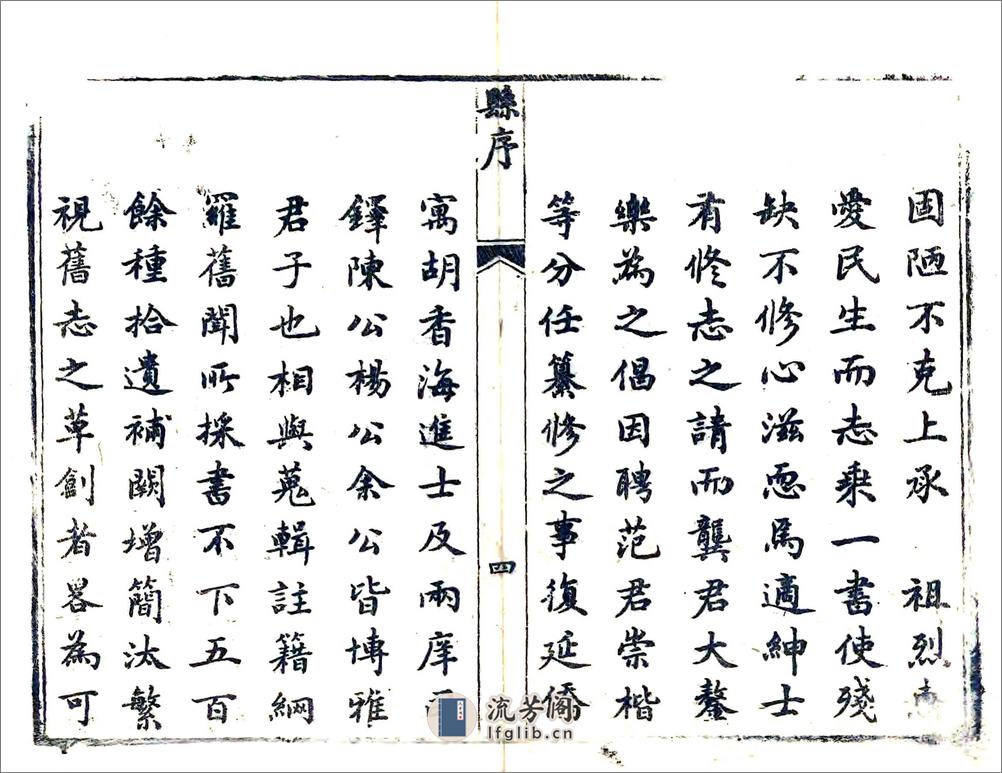 固陋不克上承 祖烈
愛民生而志乗一書使殘
缺不修心滋恧焉適紳士
有修志之請而龔君大鰲
樂為之倡因聘范君崇楷
等分任纂修之事復延僑
縣序
四
寓胡香海進士及兩庠
鐸陳公楊公余公皆博雅
君子也相與蒐輯註籍網
羅舊聞所採書不下五百
餘種拾遺補闕增簡汰繁
視舊志之草創者畧為可
流芳阁
lfglib.cn